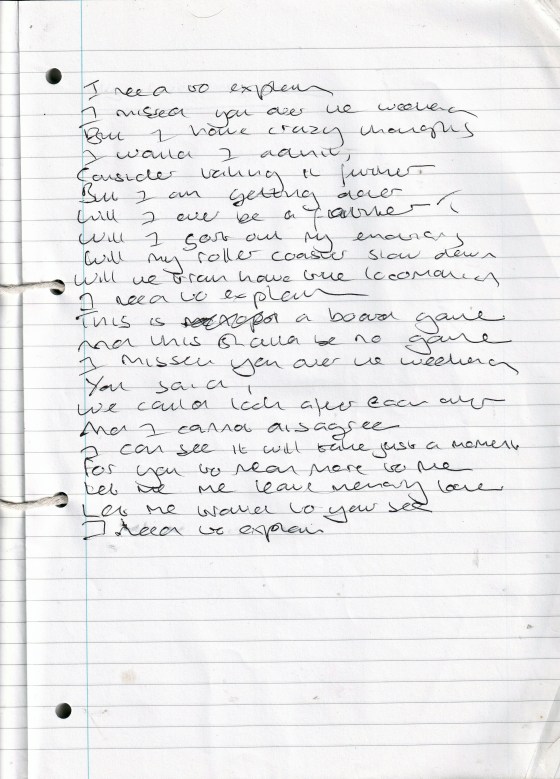 I need to explain
I missed you over the weekend
But I have crazy thoughts
I would I admit,
Consider taking it further.
But I am getting older
Will I ever be a father
Will I sort out my
Will my roller coaster slow down
Will the train have true locomotion
I need to explain
This is a board game
And this should be no game
I missed you over the weekend
You said,
We could look after each other
And I cannot disagree
I can see it will take just a moment
For you to mean more to me
Let me leave memory lane
Let me to your
I need to explain